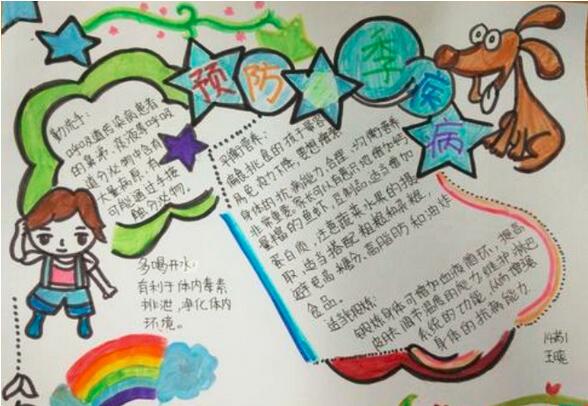 预防季疾病
勤洗手:
呼吸道传染病患者
的鼻涕、痰液等呼吸
道分泌物中含有
大量病原,有
可能通过手接
触分泌物。
多喝开水:
有利于体内毒素
排泄,净化体内
环境。
均衡营养:
偏食挑食的孩子容易
免疫力下降,要想增强
身体的抗病能力,合理、均衡营养
非常重要。家长可以有意识地增加
量的鱼虾、豆制品,适当增加
蛋白质,注意蔬菜水果的摄
取,适当搭配粗粮和杂粮,
避免高糖分、高脂肪和油炸
食品。
适当锻炼:
锻炼身体可增加血液循环,提高
皮肤调节温度的能力,维护淋巴
系统的功能,从而增强
身体的抗病能力